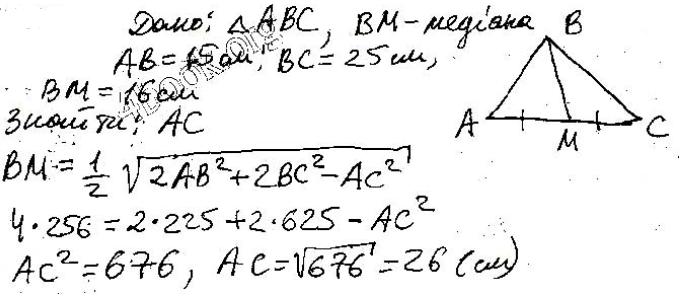 Дано: △ABC, BM-медіана
AB=15см, BC=25см,
BM=16см
Знайти: AC
B
A
M
C
BM=1/2 √(2AB²+2BC²-AC²)
4·256=2·225+2·625-AC²
AC²=676, AC=√676=26 (см)